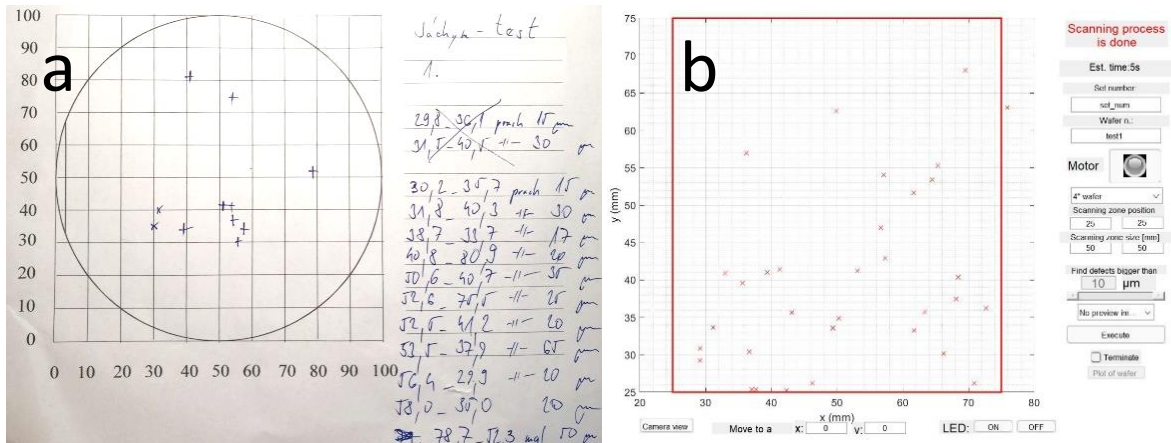 a
100
90
80
70
60
50
40
30
20
10
0
0 10 20 30 40 50 60 70 80 90 100
Jáchym - test
1.
29,8_36,1 prach 15 µm
31,5_40,5 -11- 30 µm
30,2_35,7 prach 15 µm
31,8_40,3 -11- 30 µm
38,7_33,7 -11- 17 µm
40,8_80,9 -11- 20 µm
50,6_40,7 -11- 35 µm
52,6_75,5 -11- 25 µm
52,5_41,2 -11- 20 µm
53,5_37,9 -11- 65 µm
56,4_29,9 -11- 20 µm
58,0_35,0 20 µm
78,7_52,3 mal 50 µm
b
75
70
65
60
55
50
45
40
35
30
25
20 30 40 50 60 70 80
y (mm)
x (mm)
Scanning process
is done
Est. time:5s
Set number:
set_num
Wafer n.:
test1
Motor
4" wafer
Scanning zone position
25 25
Scanning zone size [mm]
50 50
Find defects bigger than
10 µm
No preview im...
Execute
Terminate
Plot of wafer
Camera view
Move to a x: 0 y: 0
LED: ON OFF